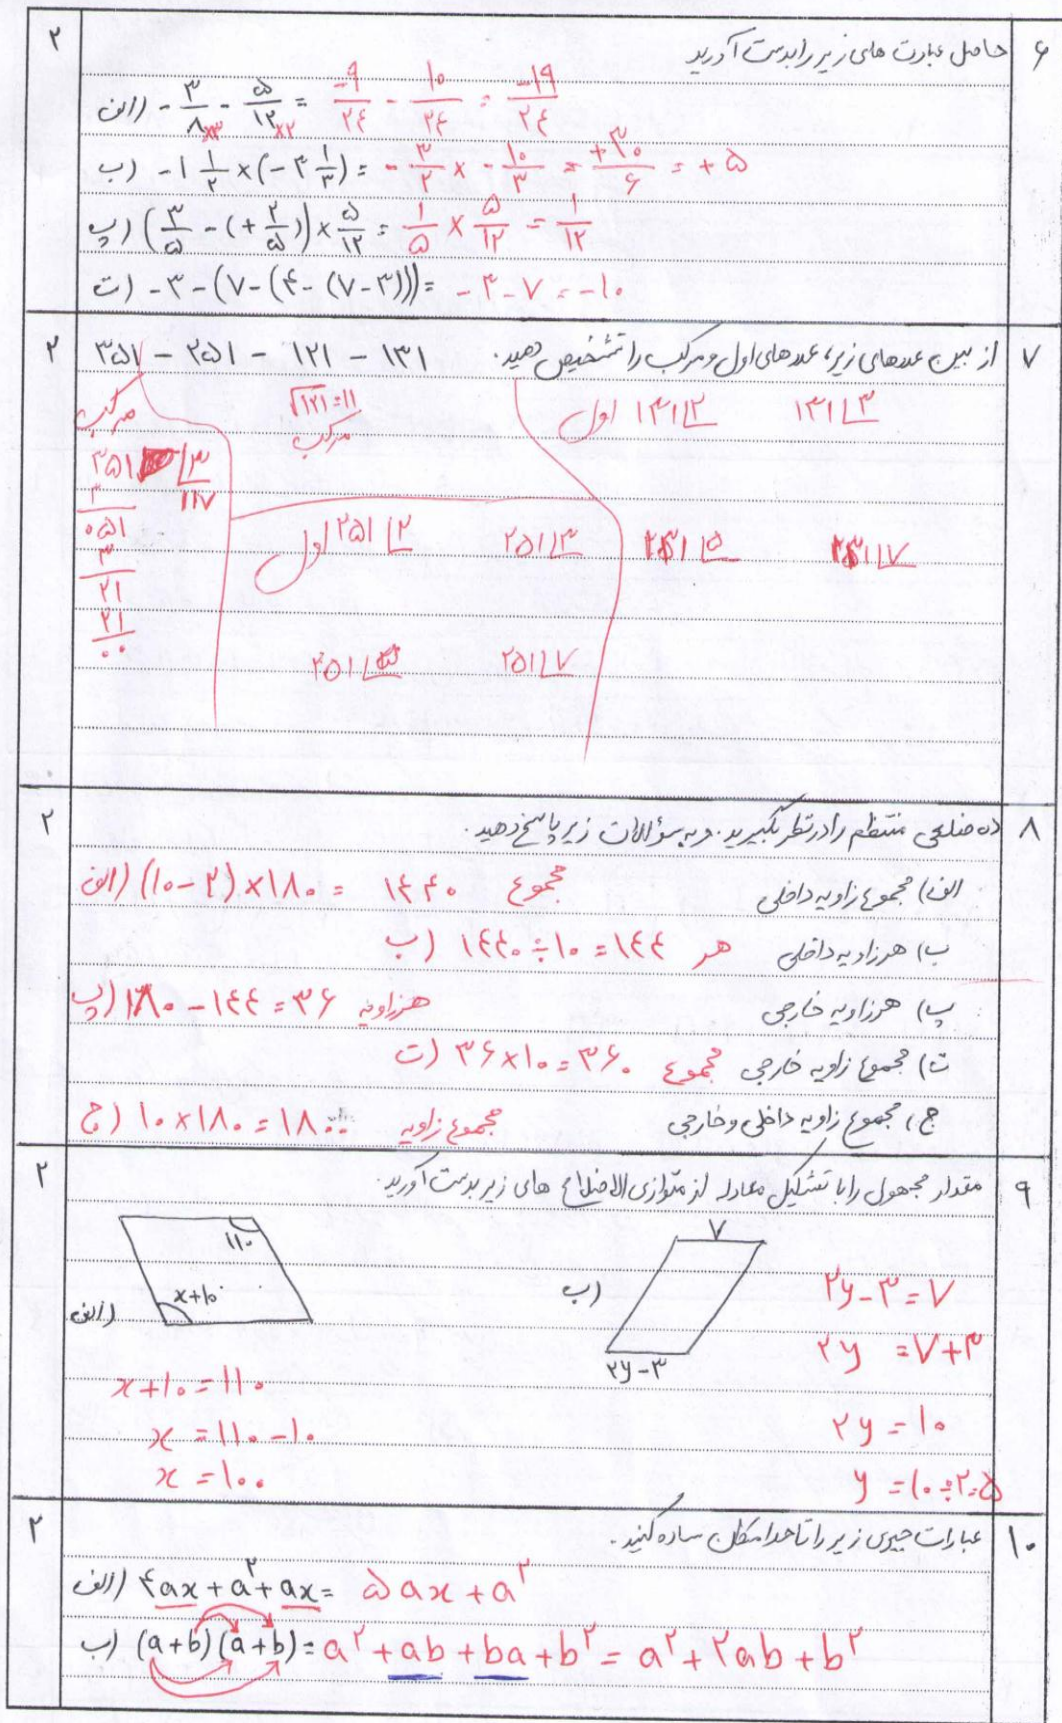 ۶ حاصل عبارت های زیر را بدست آورید ۲
الف) -۳/۸ - ۵/۱۲ = -۹/۲۴ - ۱۰/۲۴ = -۱۹/۲۴
×۳ ×۲
ب) -۱ ۱/۲ × (-۳ ۱/۳) = -۳/۲ × -۱۰/۳ = +۳۰/۶ = +۵
پ) (۳/۵ - (+۲/۵)) × ۵/۱۲ = ۱/۵ × ۵/۱۲ = ۱/۱۲
ت) -۳ - (۷ - (۴ - (۷ - ۳))) = -۳ - ۷ = -۱۰
۷ از بین عددهای زیر، عددهای اول و مرکب را تشخیص دهید. ۱۳۱ - ۱۲۱ - ۲۵۱ - ۳۵۱ ۲
۱۳۱ ۳ ۱۳۱ ۲ اول
√۱۲۱ = ۱۱
مرکب
مرکب
۳۵۱ ۳
۳ ۱۱۷
۰۵۱
۳
۲۱
۲۱
۰۰
۱۳۱ ۷ ۱۳۱ ۵
۲۵۱ ۳ ۲۵۱ ۲ اول
۲۵۱ ۷ ۲۵۱ ۵
۸ ده ضلعی منتظم را در نظر بگیرید. و به سؤالات زیر پاسخ دهید. ۲
الف) مجموع زاویه داخلی مجموع الف) (۱۰-۲)×۱۸۰ = ۱۴۴۰
ب) هر زاویه داخلی هر ب) ۱۴۴۰÷۱۰=۱۴۴
پ) هر زاویه خارجی هر زاویه پ) ۱۸۰-۱۴۴=۳۶
ت) مجموع زاویه خارجی مجموع ت) ۳۶×۱۰=۳۶۰
ج) مجموع زاویه داخلی و خارجی مجموع زاویه ج) ۱۰×۱۸۰=۱۸۰۰
۹ مقدار مجهول را با تشکیل معادله از متوازی الاضلاع های زیر بدست آورید. ۲
الف)
۱۱۰
x+۱۰
x+۱۰=۱۱۰
x=۱۱۰-۱۰
x=۱۰۰
ب)
۷
۲y-۳
۲y-۳=۷
۲y=۷+۳
۲y=۱۰
y=۱۰÷۲=۵
۱۰ عبارات جبری زیر را تا حد امکان ساده کنید. ۲
الف) ۴ax+a²+ax= ۵ax+a²
ب) (a+b)(a+b)=a²+ab+ba+b²=a²+۲ab+b²